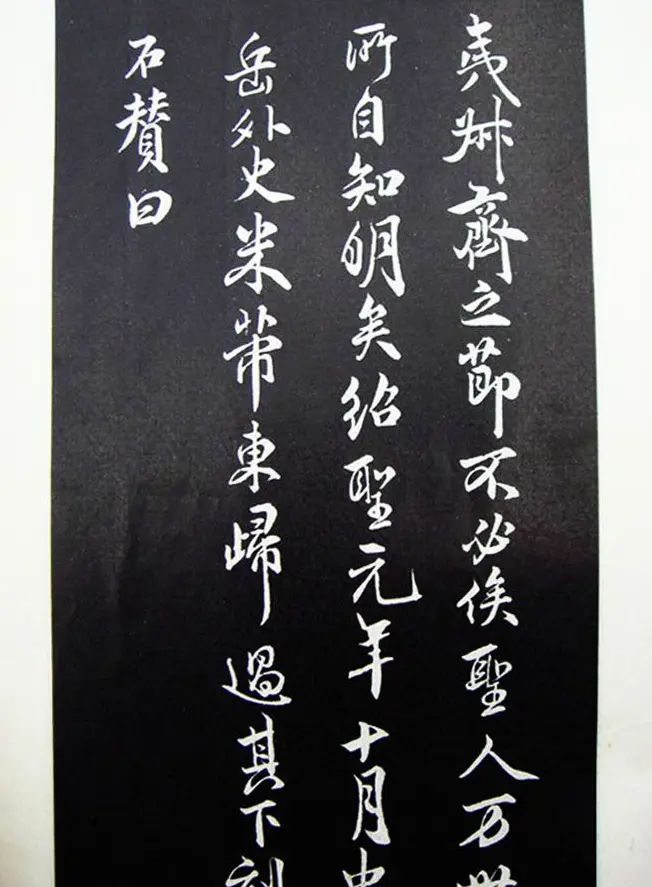 夷叔齊之節不必俟聖人万世
所自知明矣紹聖元年十月中
岳外史米芾東歸過其下刻
石贊曰